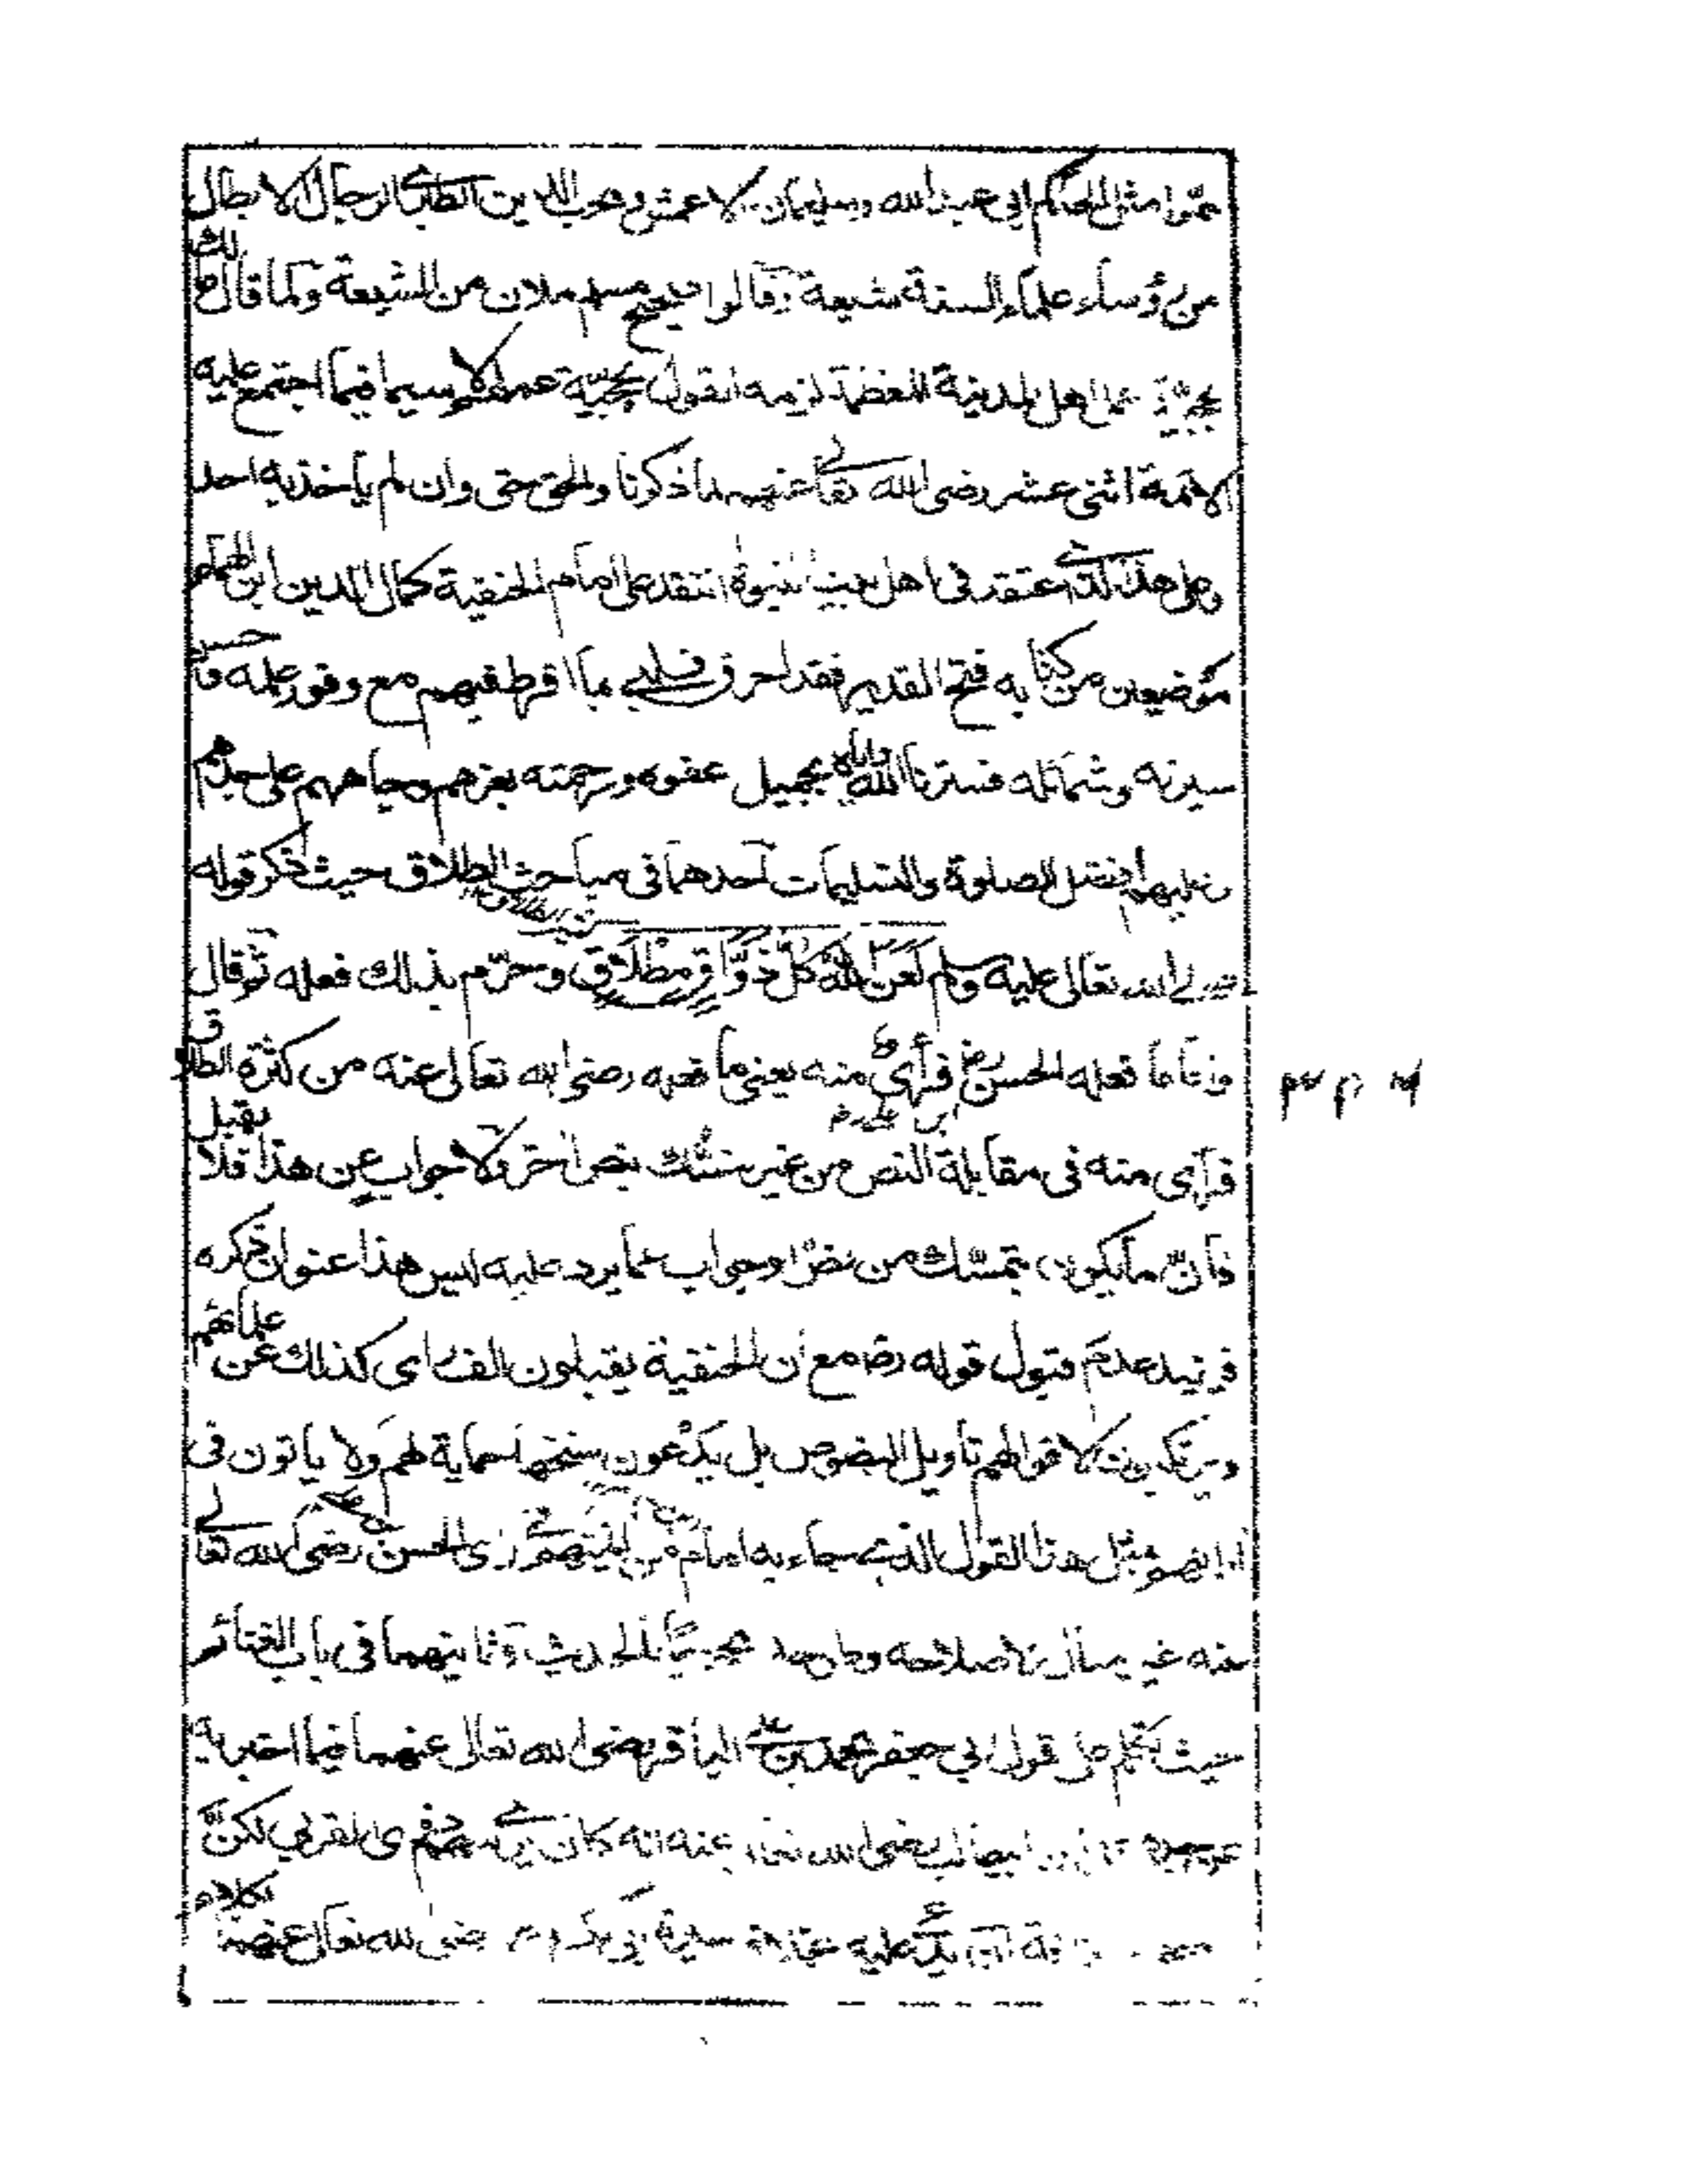 عمّوا مثل الحاكم ابي عبدالله وسليمان الاعمش ومحب الدين الطبري الرجال الابطال
من رؤساء علماء السنة شيعة وقالوا صحيح مسلم ملان من الشيعة وكما قال مالك
بحجية عمل اهل المدينة المعظمة لزمه القول بحجية عملهم لا سيما فيما اجتمع عليه
الائمة اثنى عشر رضى الله تعالى عنهم لما ذكرنا والحق حق وان لم ياخذ به احد
وعلى هذا الذي اعتقد فى اهل بيت النبوة انتقد على امام الحنفية كمال الدين ابن الهمام
موضعين من كتابه فتح القدير فقد احرق قلبي بما افرط فيهم مع وفور علمه وحسن
سيرته وشمائله فسترنا الله واياه بجميل عفوه ورحمته بعزهم وجاههم على جدهم
وعليهم افضل الصلوة والتسليمات احدهما فى مباحث الطلاق حيث ذكر قوله
صلى الله تعالى عليه وسلم لعن الله كل ذوّاق مطلاق وحرّم بذلك فعله ثم قال
واما ما فعله الحسن رض فرأى منه يعنى ما فعله رضى الله تعالى عنه من كثرة الطلاق
ابن علي رض
فرأى منه فى مقابلة النص من غير تمسّك بنص اخر ولا جواب عن هذا فلا يقبل
فانّ ما يكون بتمسّك من نص او جواب عما يرد عليه ليس هذا عنوان ذكره
فيزيد عدم قبول قوله رض مع ان الحنفية يقبلون الف راى كذلك عن علمائهم
ويرتكبون لاقوالهم تاويل النصوص بل يدّعون نسخها حماية لهم ولا ياتون فى
مثل هذا القول الذي جاء به امام من راى الحسن بن علي رضى الله تعالى
عنه غير مبال لاصلاحه وثانيتهما فى باب الغنائم
حيث تكلم على قول ابي جعفر محمد بن علي الباقر رضى الله تعالى عنهما فيما اخبر به
رضى الله تعالى عنه انه كان يرى سهم ذوى القربى لكن
سيرة ابي بكر وعمر رضى الله تعالى عنهما